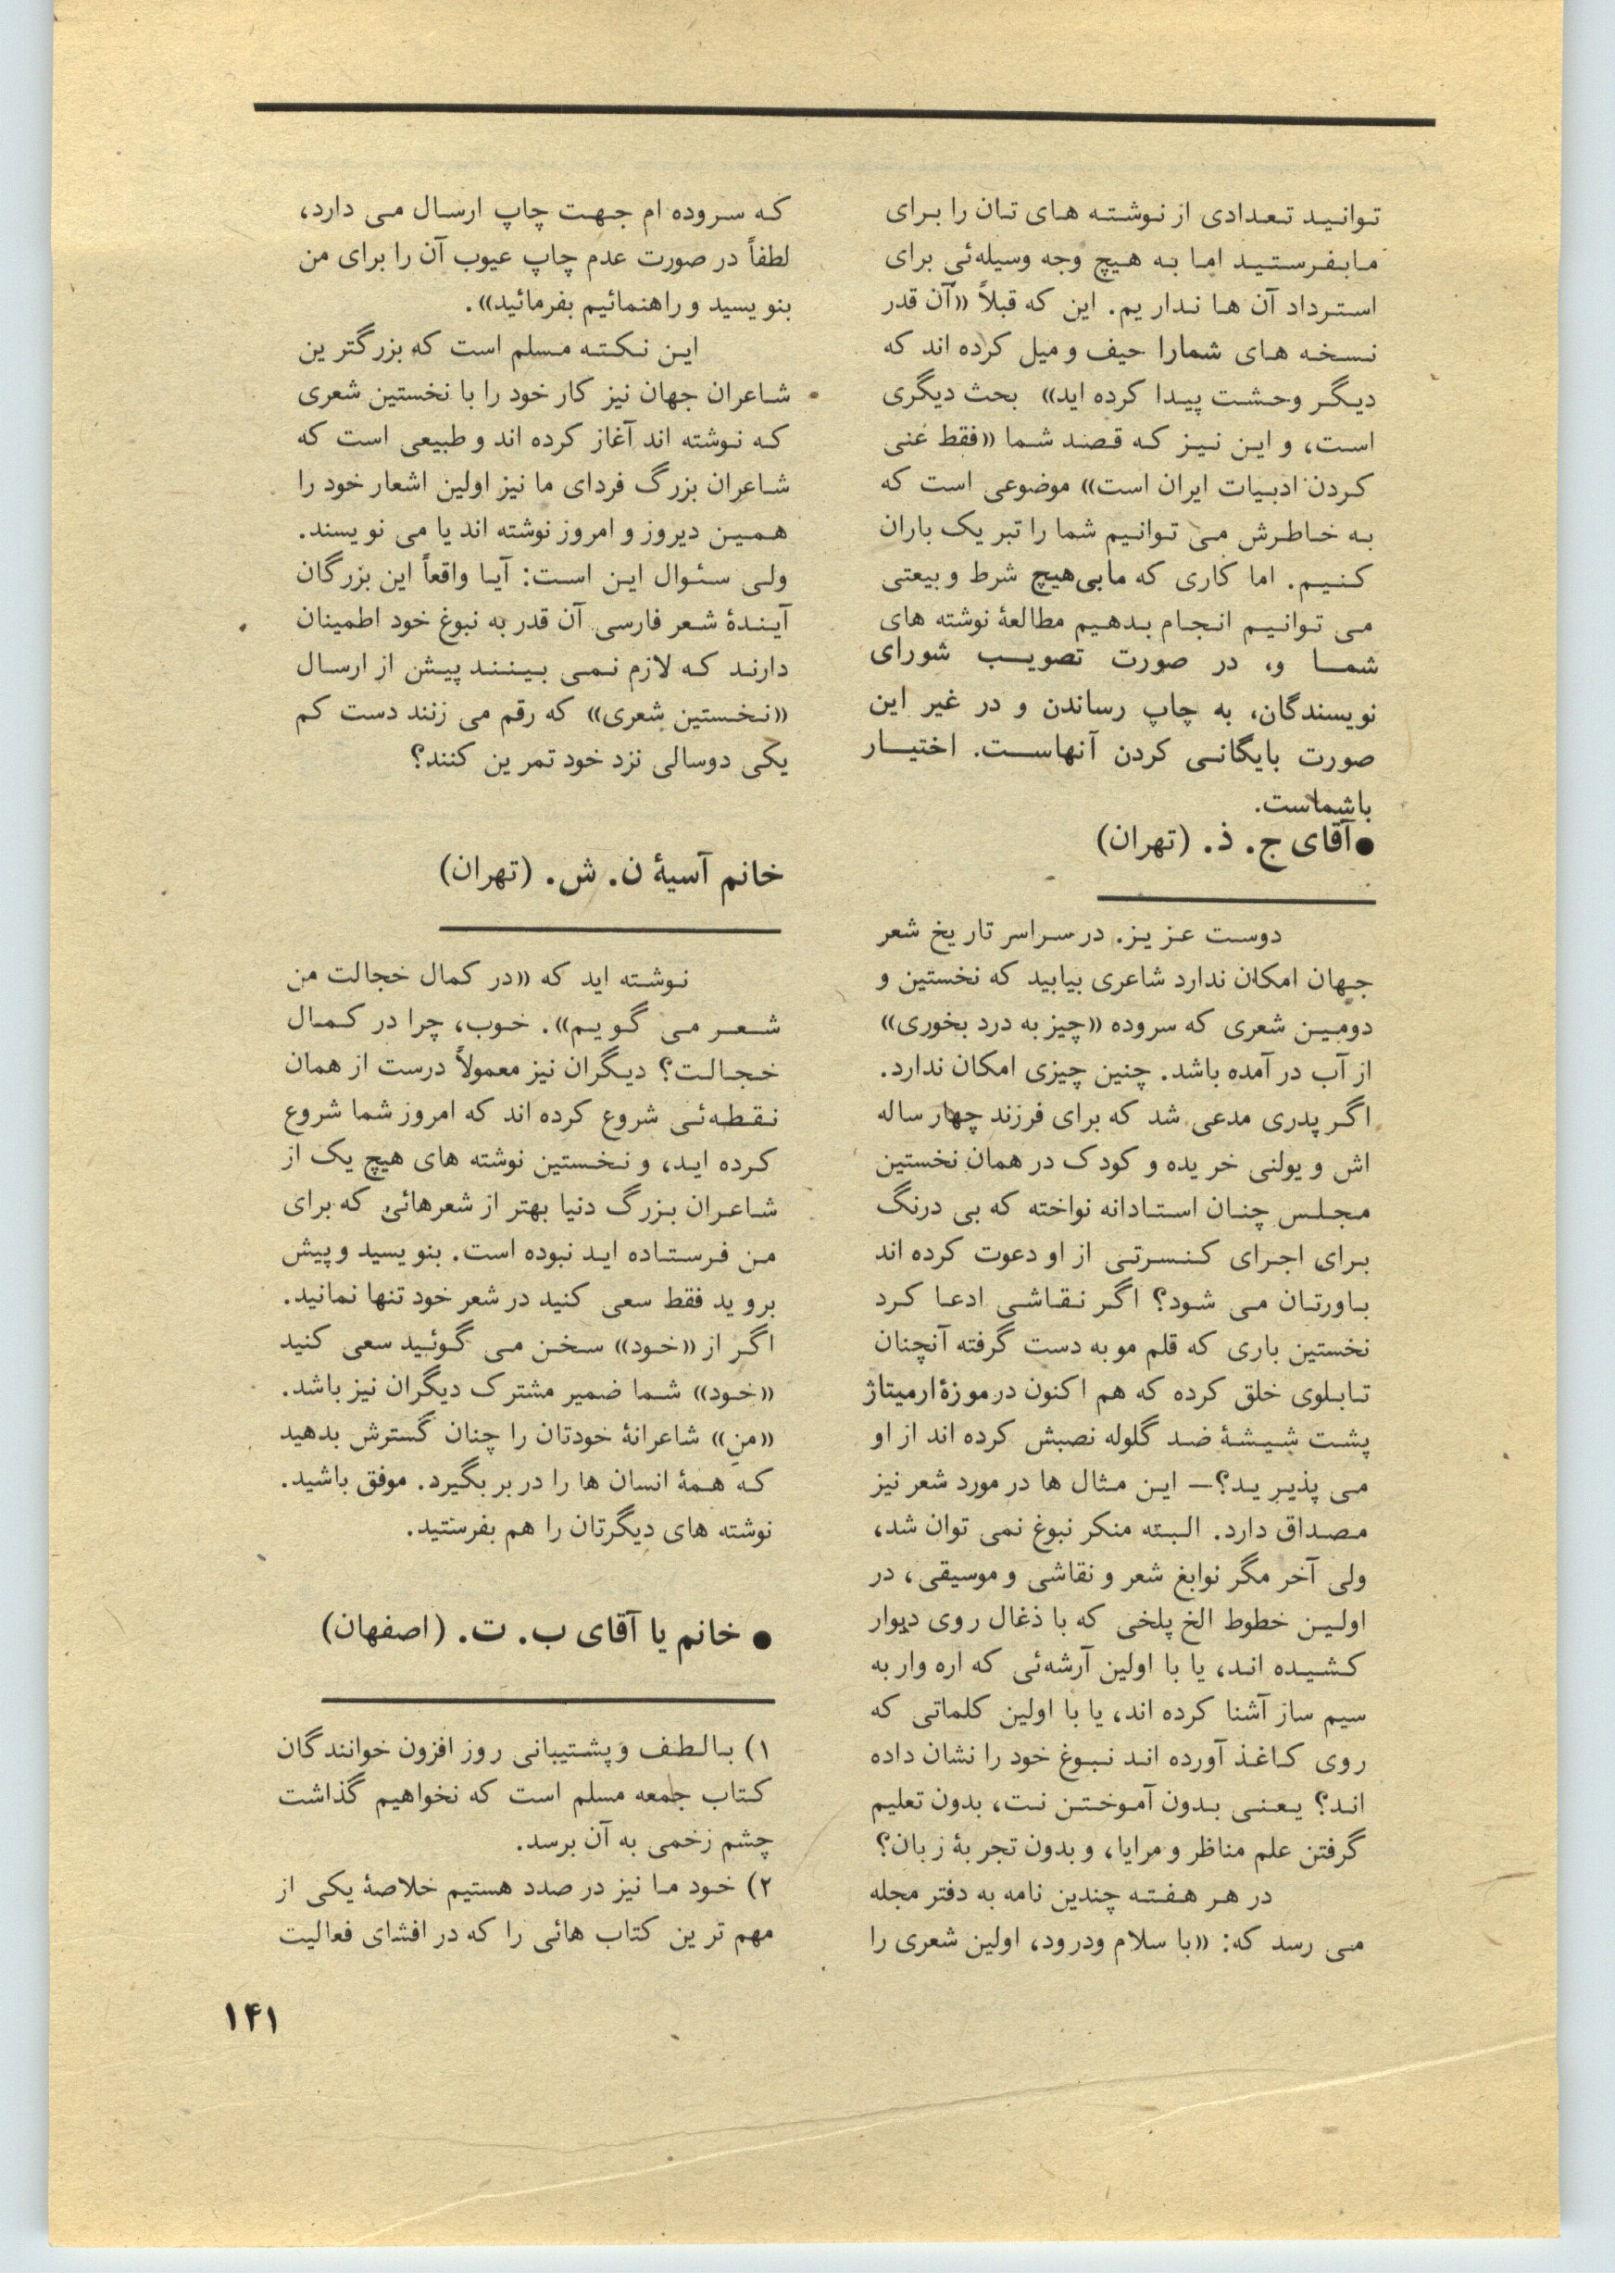 توانید تعدادی از نوشته های تان را برای
مابفرستید اما به هیچ وجه وسیله‌ئی برای
استرداد آن ها نداریم. این که قبلاً «آن قدر
نسخه های شمارا حیف و میل کرده اند که
دیگر وحشت پیدا کرده اید» بحث دیگری
است، و این نیز که قصد شما «فقط غنی
کردن ادبیات ایران است» موضوعی است که
به خاطرش می توانیم شما را تبریک باران
کنیم. اما کاری که مابی‌هیچ شرط و بیعتی
می توانیم انجام بدهیم مطالعهٔ نوشته های
شما و، در صورت تصویب شورای
نویسندگان، به چاپ رساندن و در غیر این
صورت بایگانی کردن آنهاست. اختیار
باشماست.
●آقای ج. ذ. (تهران)
دوست عزیز. در سراسر تاریخ شعر
جهان امکان ندارد شاعری بیابید که نخستین و
دومین شعری که سروده «چیز به درد بخوری»
از آب در آمده باشد. چنین چیزی امکان ندارد.
اگر پدری مدعی شد که برای فرزند چهار ساله
اش ویولنی خریده و کودک در همان نخستین
مجلس چنان استادانه نواخته که بی درنگ
برای اجرای کنسرتی از او دعوت کرده اند
باورتان می شود؟ اگر نقاشی ادعا کرد
نخستین باری که قلم مو به دست گرفته آنچنان
تابلوی خلق کرده که هم اکنون در موزهٔ ارمیتاژ
پشت شیشهٔ ضد گلوله نصبش کرده اند از او
می پذیرید؟— این مثال ها در مورد شعر نیز
مصداق دارد. البته منکر نبوغ نمی توان شد،
ولی آخر مگر نوابغ شعر و نقاشی و موسیقی، در
اولین خطوط الخ پلخی که با ذغال روی دیوار
کشیده اند، یا با اولین آرشه‌ئی که اره وار به
سیم ساز آشنا کرده اند، یا با اولین کلماتی که
روی کاغذ آورده اند نبوغ خود را نشان داده
اند؟ یعنی بدون آموختن نت، بدون تعلیم
گرفتن علم مناظر و مرایا، و بدون تجربهٔ زبان؟
در هر هفته چندین نامه به دفتر مجله
می رسد که: «با سلام ودرود، اولین شعری را
که سروده ام جهت چاپ ارسال می دارد،
لطفاً در صورت عدم چاپ عیوب آن را برای من
بنویسید و راهنمائیم بفرمائید».
این نکته مسلم است که بزرگترین
شاعران جهان نیز کار خود را با نخستین شعری
که نوشته اند آغاز کرده اند و طبیعی است که
شاعران بزرگ فردای ما نیز اولین اشعار خود را
همین دیروز و امروز نوشته اند یا می نویسند.
ولی سئوال این است: آیا واقعاً این بزرگان
آیندهٔ شعر فارسی آن قدر به نبوغ خود اطمینان
دارند که لازم نمی بینند پیش از ارسال
«نخستین شعری» که رقم می زنند دست کم
یکی دوسالی نزد خود تمرین کنند؟
خانم آسیهٔ ن. ش. (تهران)
نوشته اید که «در کمال خجالت من
شعر می گویم». خوب، چرا در کمال
خجالت؟ دیگران نیز معمولاً درست از همان
نقطه‌ئی شروع کرده اند که امروز شما شروع
کرده اید، و نخستین نوشته های هیچ یک از
شاعران بزرگ دنیا بهتر از شعرهائی که برای
من فرستاده اید نبوده است. بنویسید و پیش
بروید فقط سعی کنید در شعر خود تنها نمانید.
اگر از «خود» سخن می گوئید سعی کنید
«خود» شما ضمیر مشترک دیگران نیز باشد.
«منِ» شاعرانهٔ خودتان را چنان گسترش بدهید
که همهٔ انسان ها را در بر بگیرد. موفق باشید.
نوشته های دیگرتان را هم بفرستید.
● خانم یا آقای ب. ت. (اصفهان)
۱) بالطف و پشتیبانی روز افزون خوانندگان
کتاب جمعه مسلم است که نخواهیم گذاشت
چشم زخمی به آن برسد.
۲) خود ما نیز در صدد هستیم خلاصهٔ یکی از
مهم ترین کتاب هائی را که در افشای فعالیت
۱۴۱